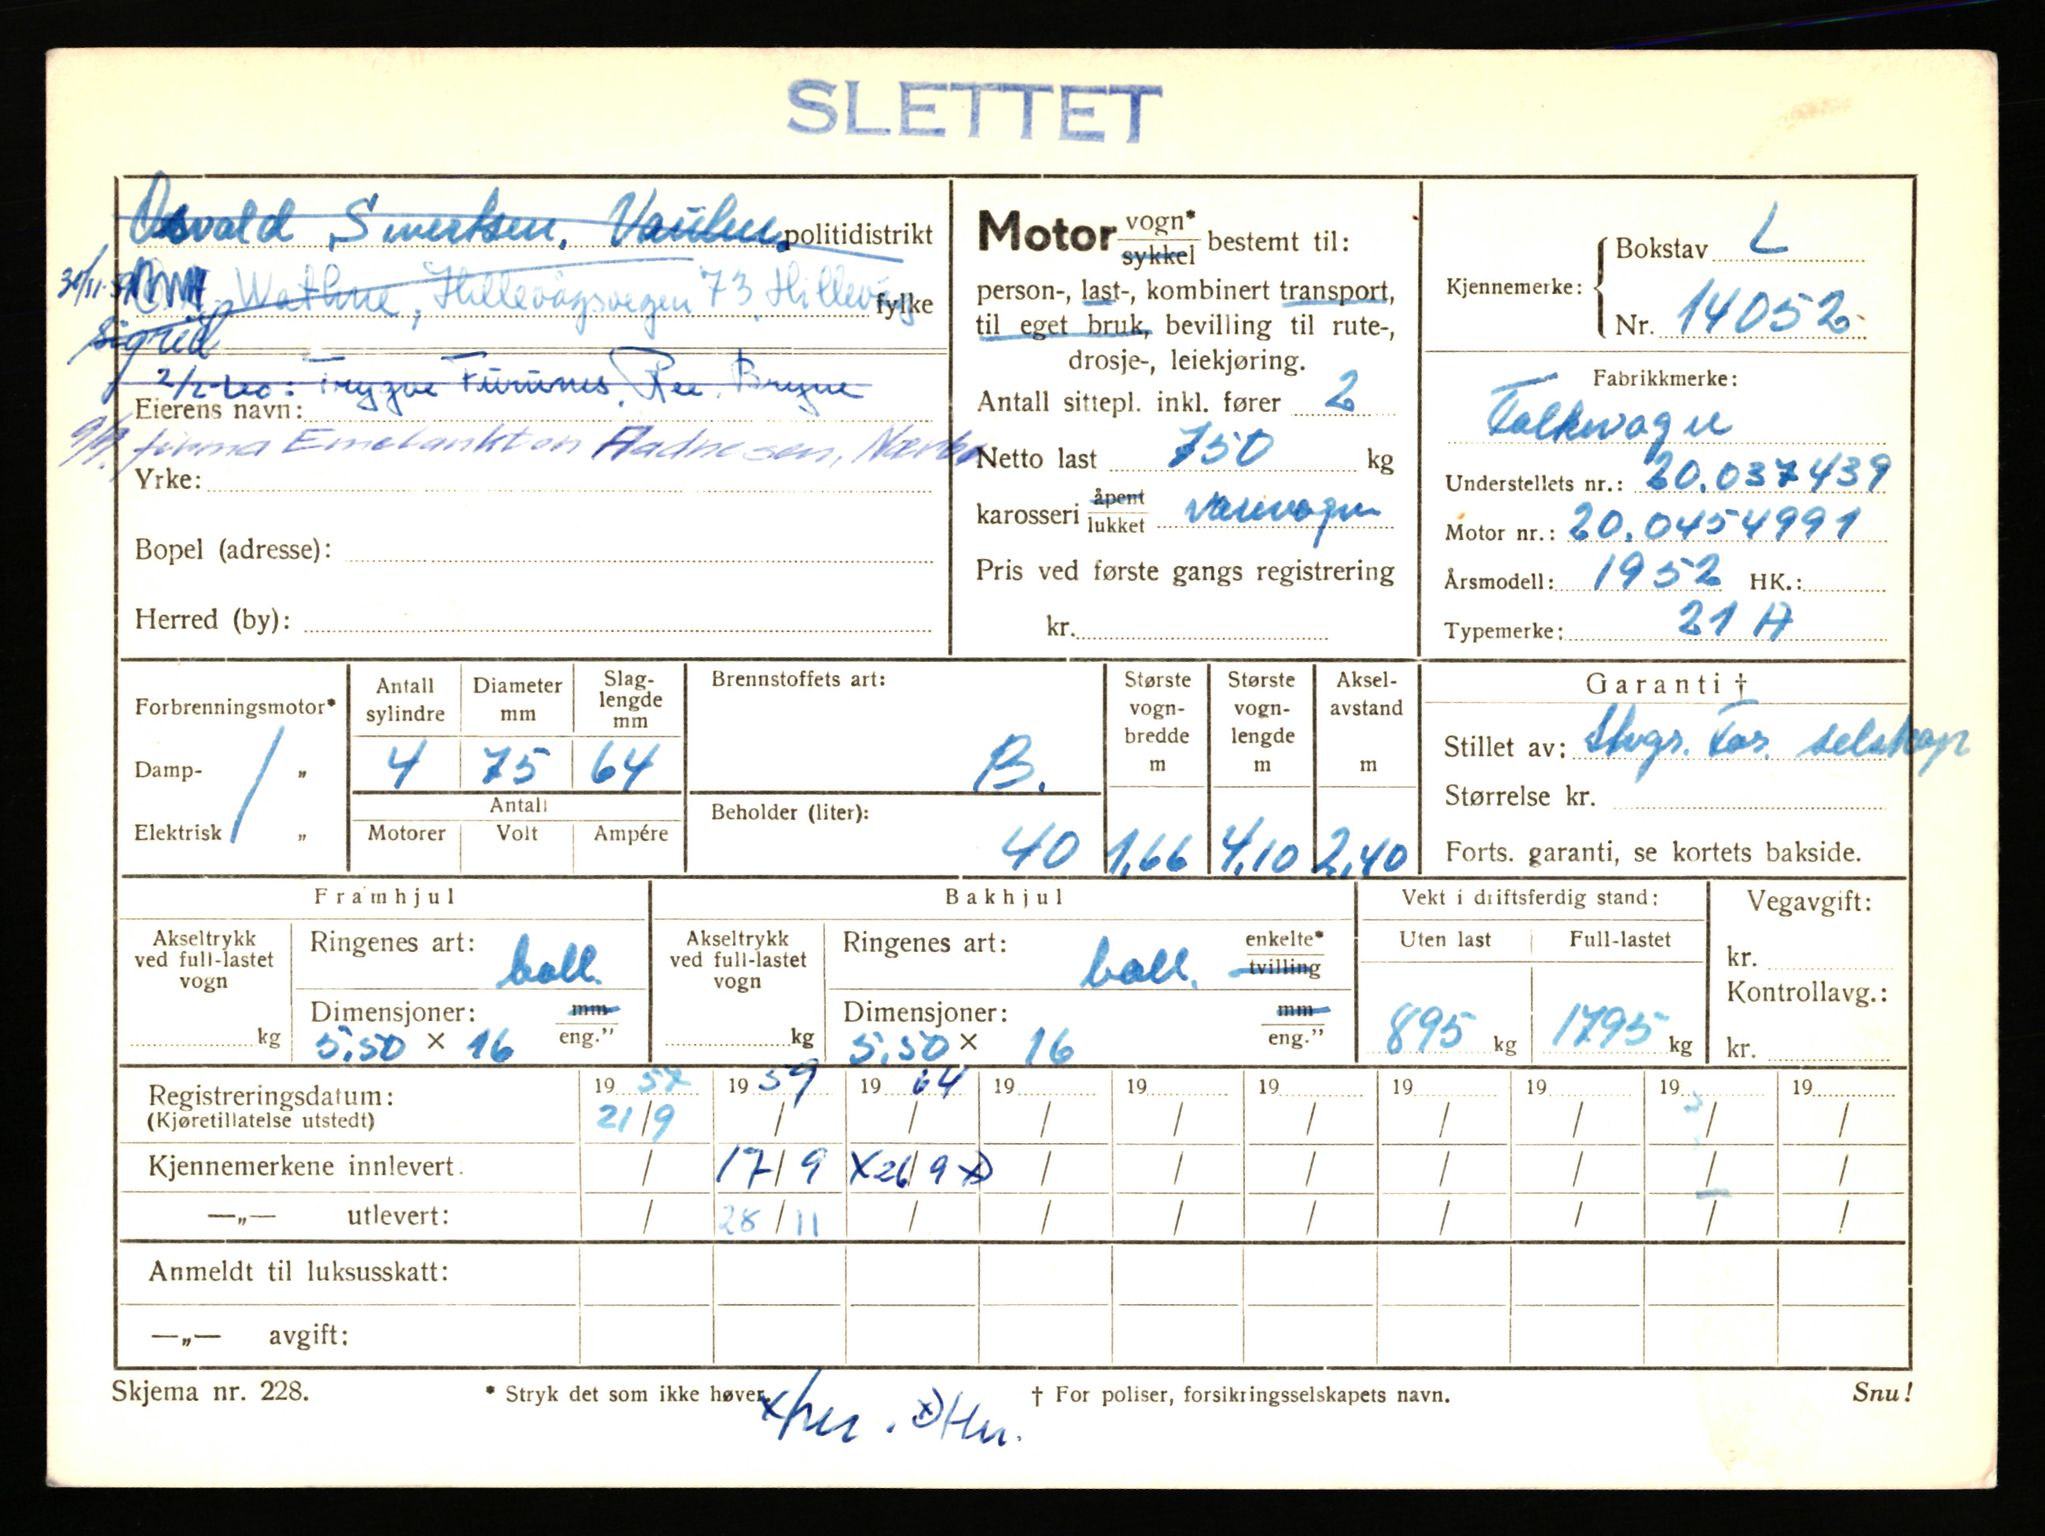 SLETTET
Osvald Sivertsen, Vaulen. politidistrikt
30/11-59 Wathne, Hillevågsvegen 73, Hillevåg fylke
Sigrid
2/2-60: Trygve Furunes, Ree, Bryne
Eierens navn:
9/9. firma Aadnesen, Nærbø
Yrke:
Bopel (adresse):
Herred (by):
Motor vogn* sykkel bestemt til:
person-, last-, kombinert transport,
til eget bruk, bevilling til rute-,
drosje-, leiekjøring.
Antall sittepl. inkl. fører 2
Netto last 750 kg
karosseri åpent lukket varevogn
Pris ved første gangs registrering
kr.
Kjennemerke: Bokstav L
Nr. 14052
Fabrikkmerke:
Folkevogn
Understellets nr.: 20.037439
Motor nr.: 20.0454991
Årsmodell: 1952 HK.:
Typemerke: 21 A
Forbrenningsmotor*
Damp- „
Elektrisk „
Antall sylindre Diameter mm Slag-lengde mm
4 75 64
Antall
Motorer Volt Ampére
Brennstoffets art:
B.
Beholder (liter):
40
Største vogn-bredde m
1,66
Største vogn-lengde m
4,10
Aksel-avstand m
2,40
Garanti †
Stillet av: Stvgr. Fors. selskap
Størrelse kr.
Forts. garanti, se kortets bakside.
Framhjul
Akseltrykk ved full-lastet vogn
kg
Ringenes art: ball.
Dimensjoner: mm eng.”
5.50 × 16
Bakhjul
Akseltrykk ved full-lastet vogn
kg
Ringenes art: ball. enkelte* tvilling
Dimensjoner: mm eng.”
5.50 × 16
Vekt i driftsferdig stand:
Uten last Full-lastet
895 kg 1795 kg
Vegavgift:
kr.
Kontrollavg.:
kr.
Registreringsdatum: 19 57 19 59 19 64 19 19 19 19 19 19 19
(Kjøretillatelse utstedt) 21/9 / / / / / / / / /
Kjennemerkene innlevert. / 17/9 x26/9 x) / / / / / / /
—„— utlevert: / 28/11 / / / / / / / /
Anmeldt til luksusskatt:
—„— avgift:
Skjema nr. 228. * Stryk det som ikke høver. † For poliser, forsikringsselskapets navn. Snu!